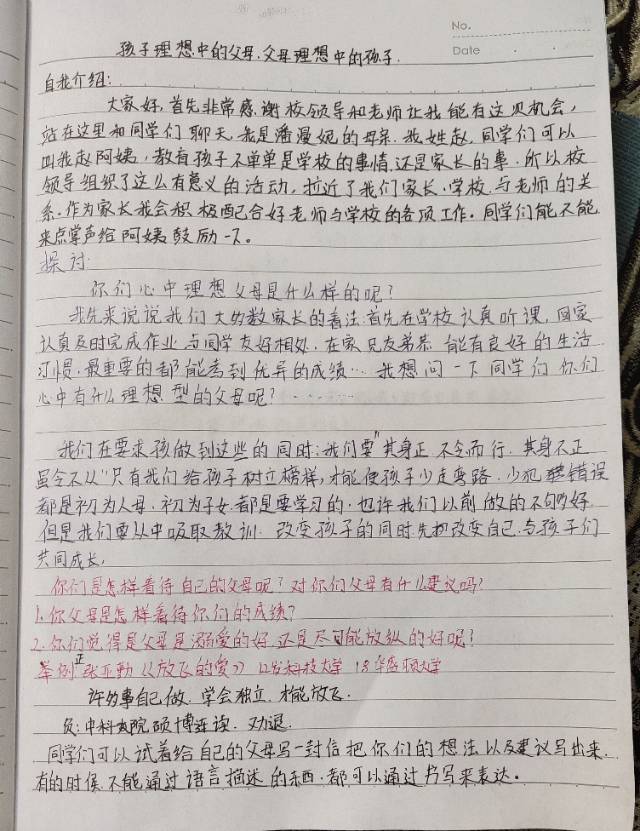 No.
Date
孩子理想中的父母.父母理想中的孩子.
自我介绍:
大家好,首先非常感谢校领导和老师让我能有这次机会,
站在这里和同学们聊天,我是潘漫妮的母亲.我姓赵,同学们可以
叫我赵阿姨,教育孩子不单单是学校的事情,还是家长的事.所以校
领导组织了这么有意义的活动,拉近了我们家长.学校.与老师的关
系.作为家长我会积极配合好老师与学校的各项工作.同学们能不能
来点掌声给阿姨鼓励一下。
探讨:
你们心中理想父母是什么样的呢?
我先来说说我们大多数家长的看法.首先在学校认真听课,回家
认真及时完成作业.与同学友好相处.在家兄友弟恭.能有良好的生活
习惯.最重要的都能考到优异的成绩… 我想问一下同学们你们
心中有什么理想型的父母呢?……
我们在要求孩做到这些的同时:我们要"其身正不令而行.其身不正
虽令不从"只有我们给孩子树立榜样,才能使孩子少走弯路.少犯错误
都是初为人母.初为子女.都是要学习的.也许我们以前做的不够好
但是我们要从中吸取教训.改变孩子的同时先把改变自己.与孩子们
共同成长,
你们是怎样看待自己的父母呢?对你们父母有什么建议吗?
1.你父母是怎样看待你们的成绩?
2.你们觉得是父母是溺爱的好.还是尽可能放纵的好呢?
举例 正 张亚勤《放飞的爱》12岁科技大学 18华盛顿大学
许多事自己做.学会独立.才能放飞.
负:中科院硕博连读.劝退.
同学们可以试着给自己的父母写一封信把你们的想法以及建议写出来.
有的时候不能通过语言描述的东西.都可以通过书写来表达。